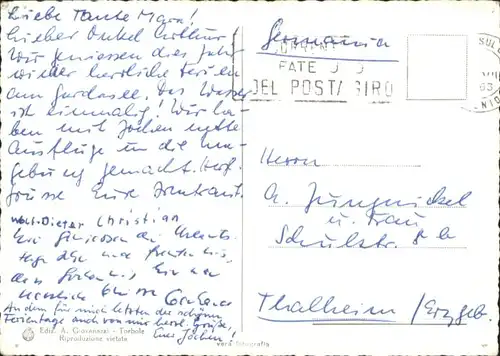 Liebe Tante Mara!
Lieber Onkel Arthur!
Wir geniessen dies Jahr
wieder herrliche Ferien
am Gardasee. Das Wasser
ist einmalig! Wir ha-
ben mit Jochen nette
Ausflüge in die Um-
gebung gemacht. Herzl.
Grüsse Eure
Wolf-Dieter Christian
Wir geniessen die
tage
herzliche Grüsse
An dem für mich letzten der schönen
Ferientage auch von mir herzl. Grüße,
Euer Jochen!
Ediz. A. Giovanazzi - Torbole
Riproduzione vietata
vera fotografia
Germania
FATE USO
DEL POSTAGIRO
SUL
63
Herrn
A. Jungnickel
u. Frau
Schulstr. 8 b
Thalheim / Erzgeb.